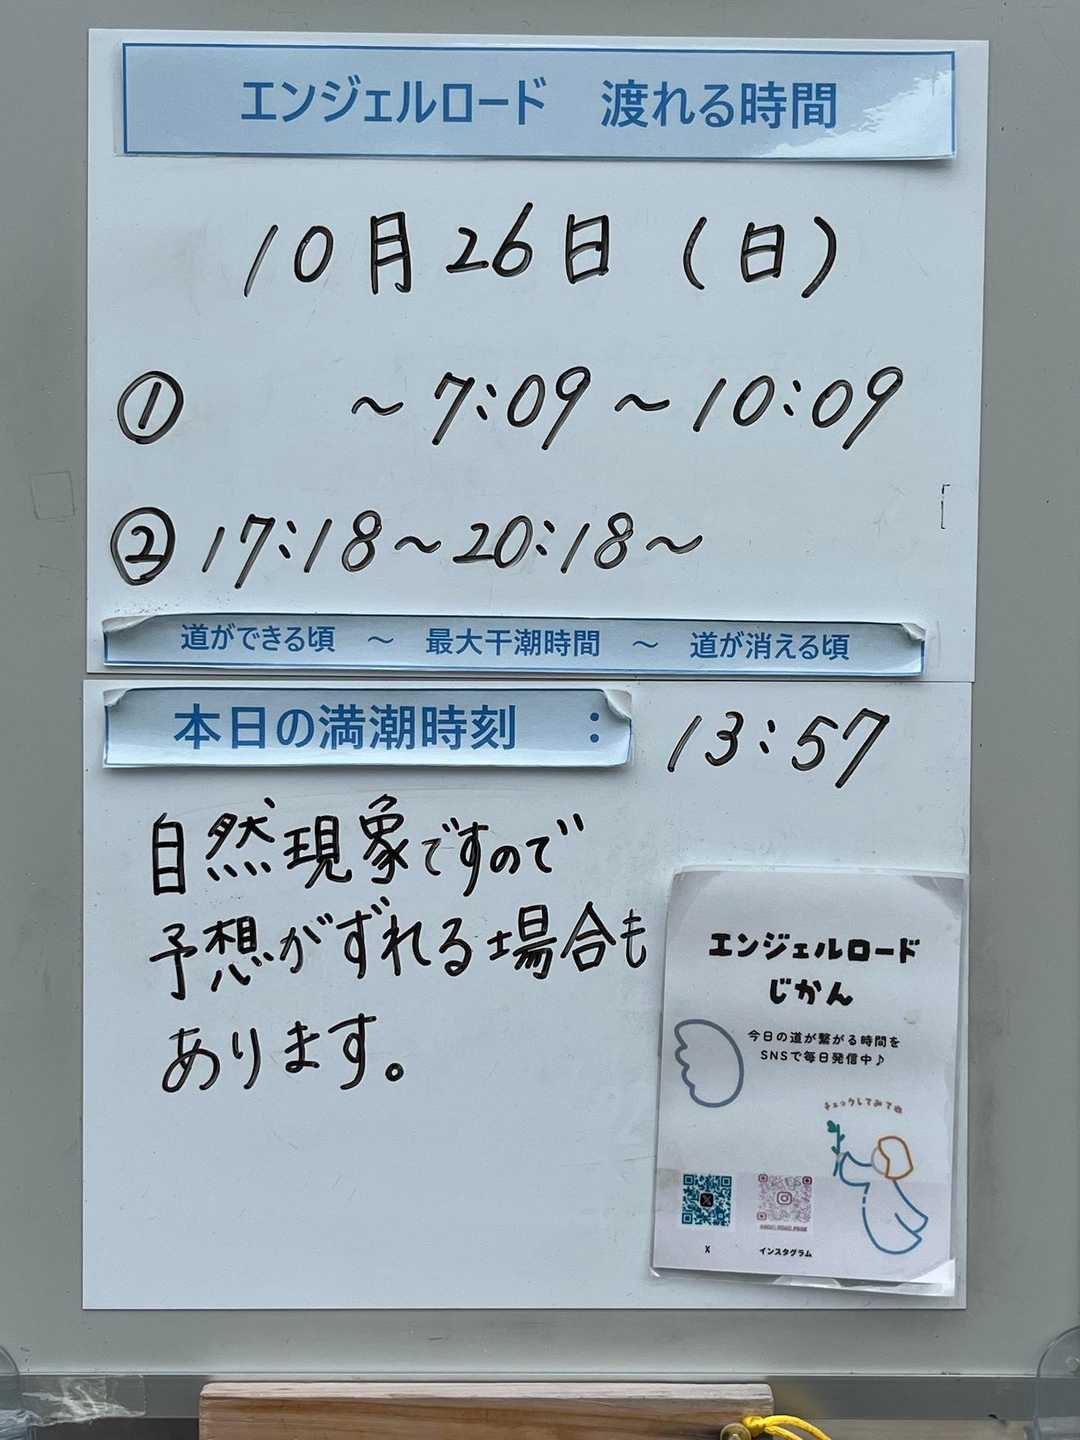 エンジェルロード　渡れる時間
10月26日（日）
① ～7:09～10:09
② 17:18～20:18～
道ができる頃　～　最大干潮時間　～　道が消える頃
本日の満潮時刻　： 13:57
自然現象ですので
予想がずれる場合も
あります。
エンジェルロード
じかん
今日の道が繋がる時間を
SNSで毎日発信中♪
チェックしてみてね
X インスタグラム